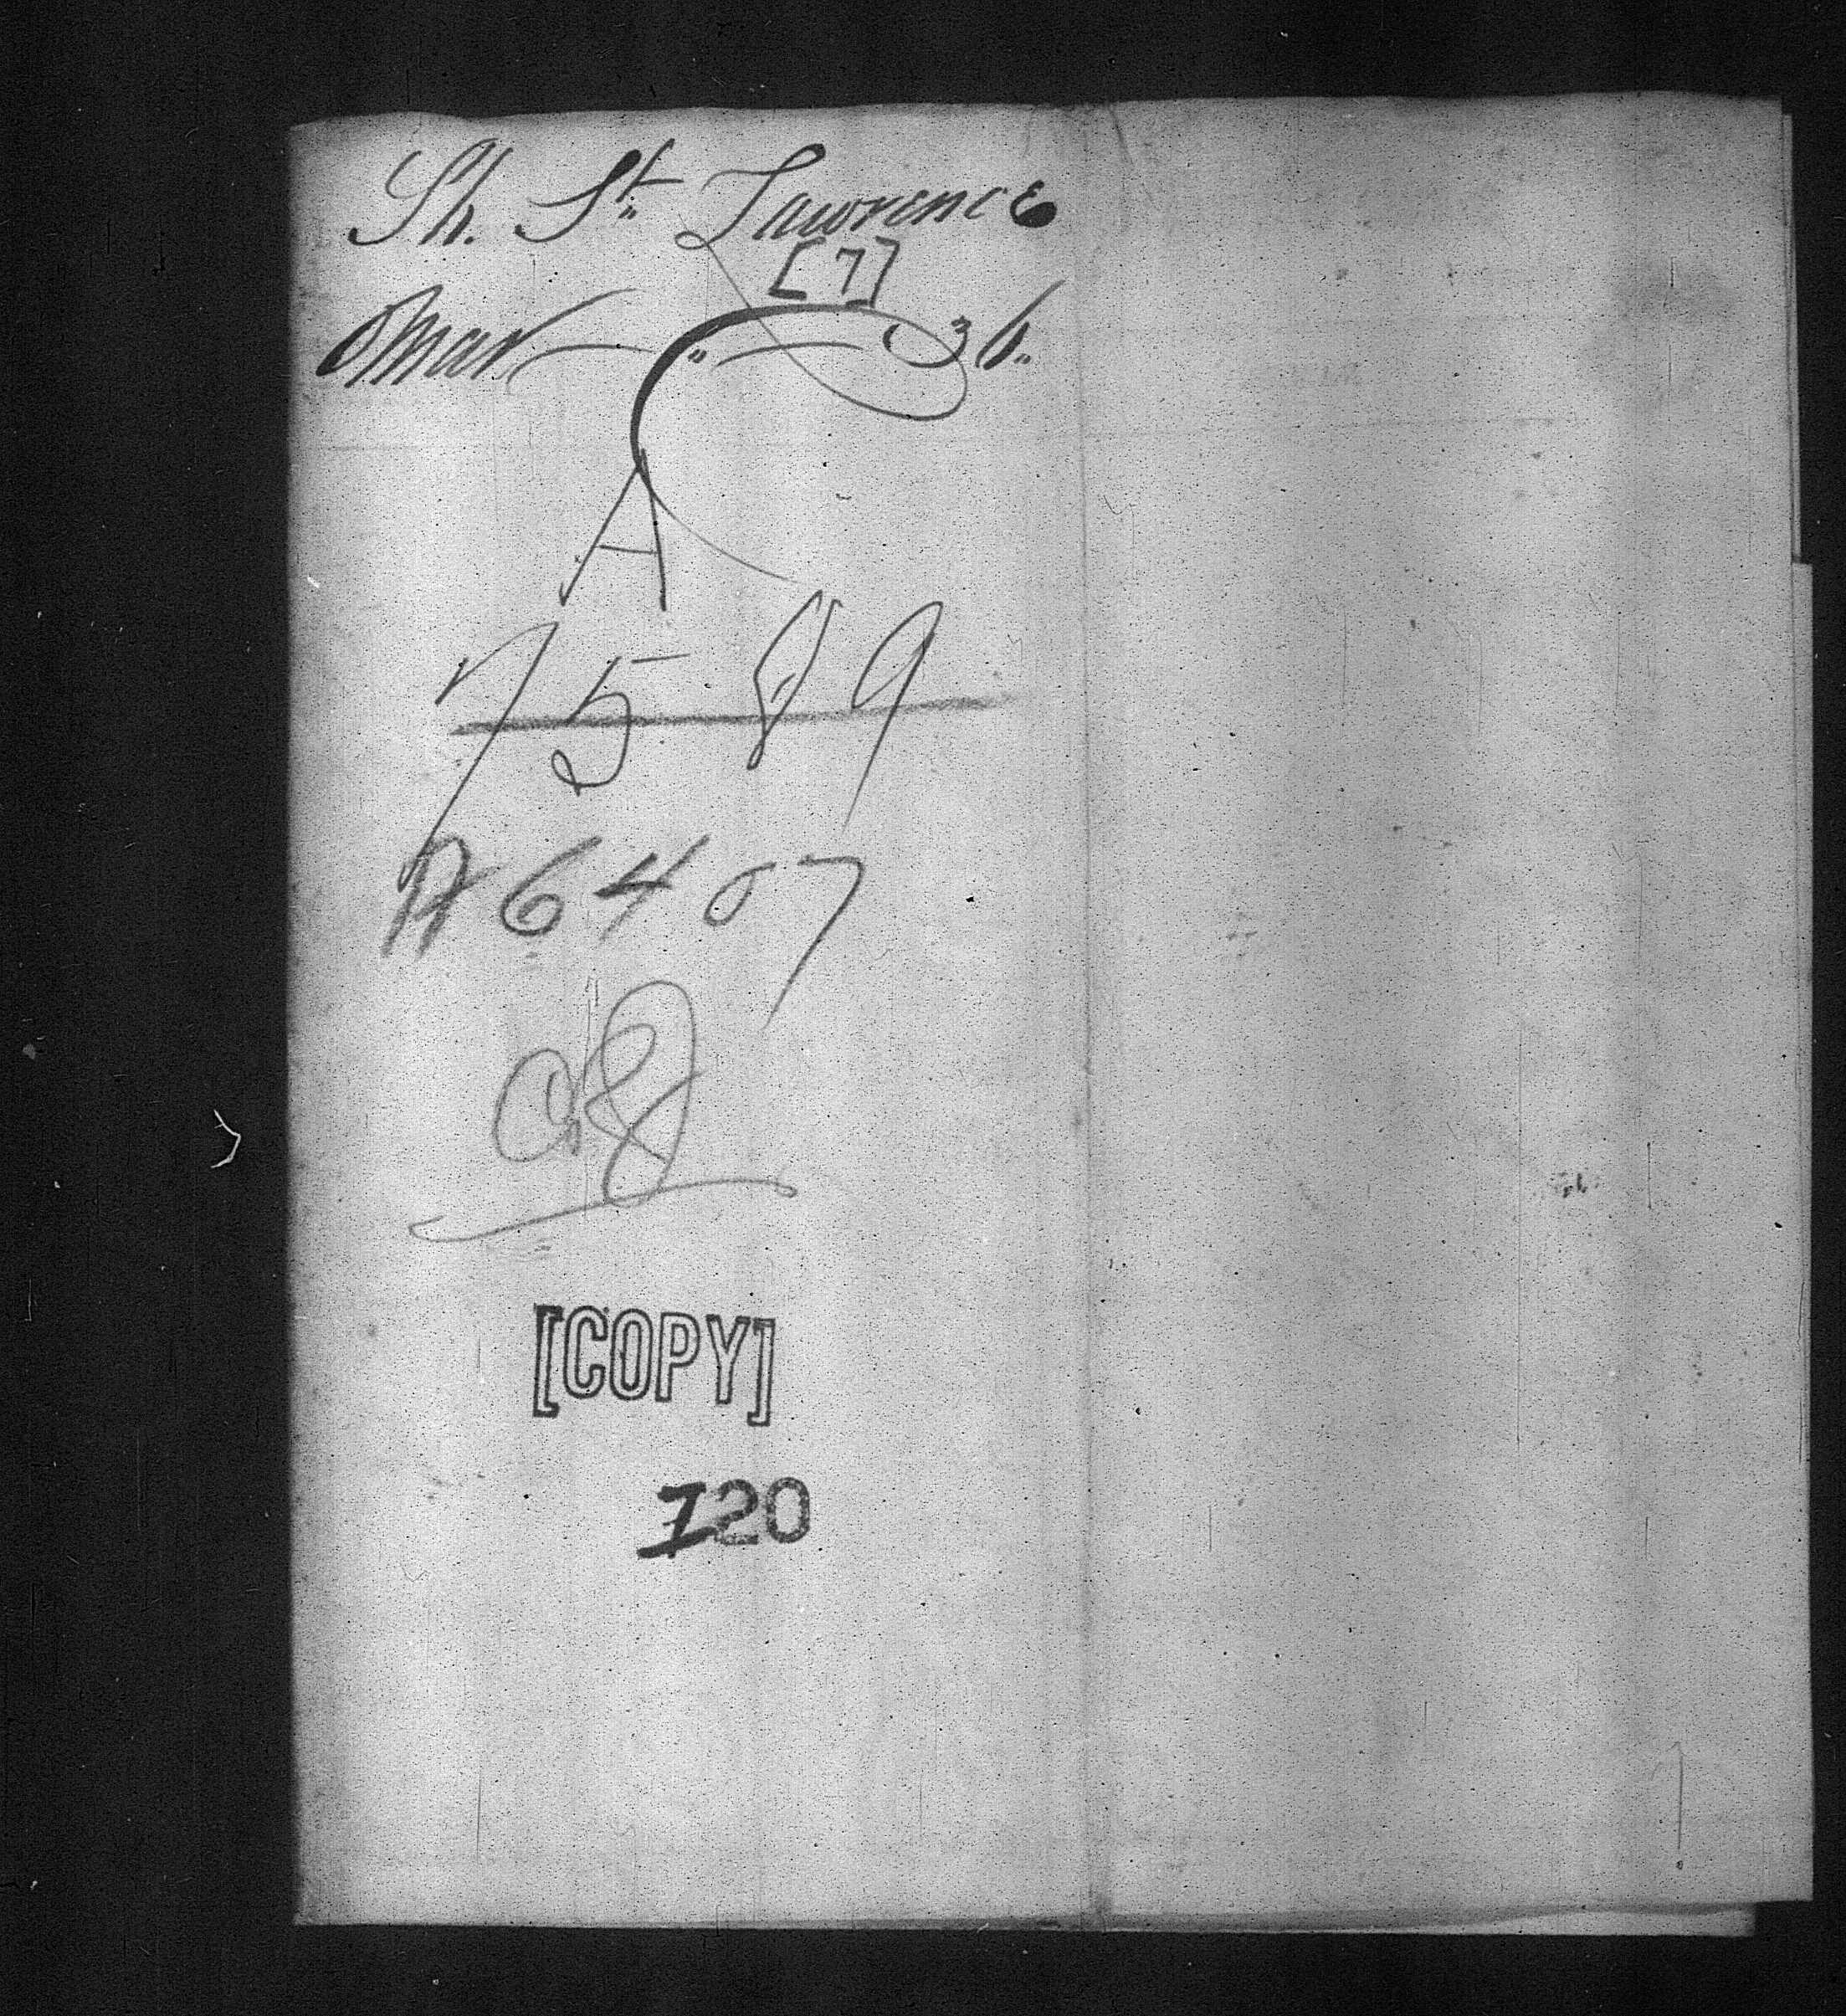 Sh. St. Lawrence
[7]
Mar " 36.
A
7589
A 6407
[COPY]
120